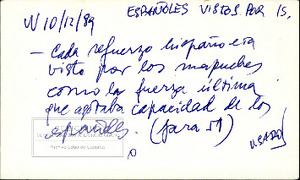 N 10/12/89 ESPAÑOLES VISTOS POR IS.
- Cada refuerzo hispano era
visto por los mapuches
como la fuerza última
que agotaba capacidad de los
españoles. (Jara 51)
USADO